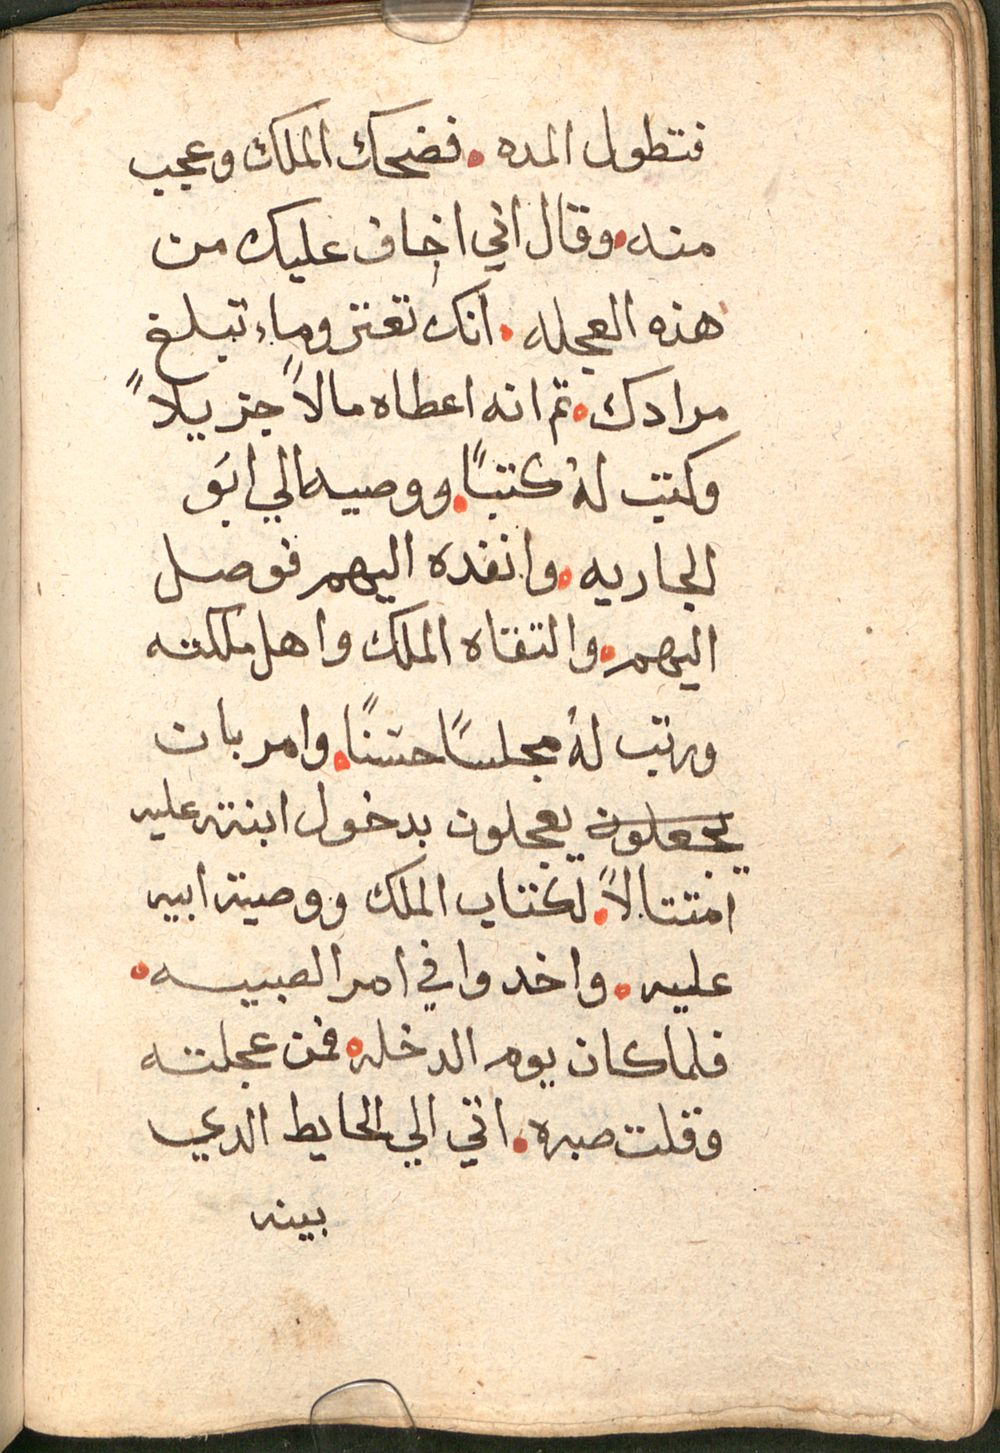 فتطول المده • فضحك الملك وعجب
منه • وقال اني اخاف عليك من
هذه العجله • انك تعتر وما تبلغ
مرادك • تم انه اعطاه مالاً جزيلاً
وكتب لهُ كتباً • ووصيه الي ابو
الجاريه • وانفده اليهم فوصل
اليهم • والتقاه الملك واهل مملكته
ورتب لهُ مجلساً حسناً • وامر بان
يجعلون يعجلون بدخول ابنته عليه
امتتالاً • لكتاب الملك ووصيته ابيه
عليه • واخدوا في امر الصبيه •
فلما كان يوم الدخله • فمن عجلته
وقلت صبره • اتي الي الحايط الدي
بينه